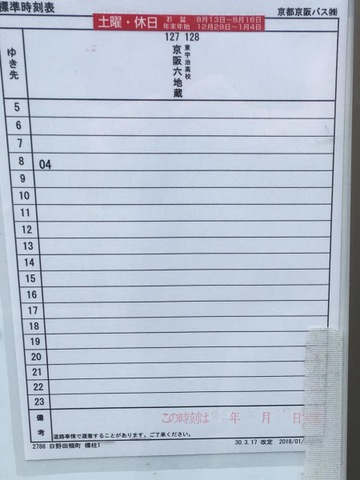 標準時刻表
土曜・休日 お盆 8月13日~8月16日
年末年始 12月29日~1月4日
京都京阪バス㈱
127 128
ゆき先
東宇治高校
京阪六地蔵
5
6
7
8 04
9
10
11
12
13
15
15
16
17
18
19
20
21
22
23
この時刻は 年 月 日
備考
道路事情で遅着することがあります。ご了承ください。
2786 日野田頬町 標柱1
30.3.17 改定 2018/01/